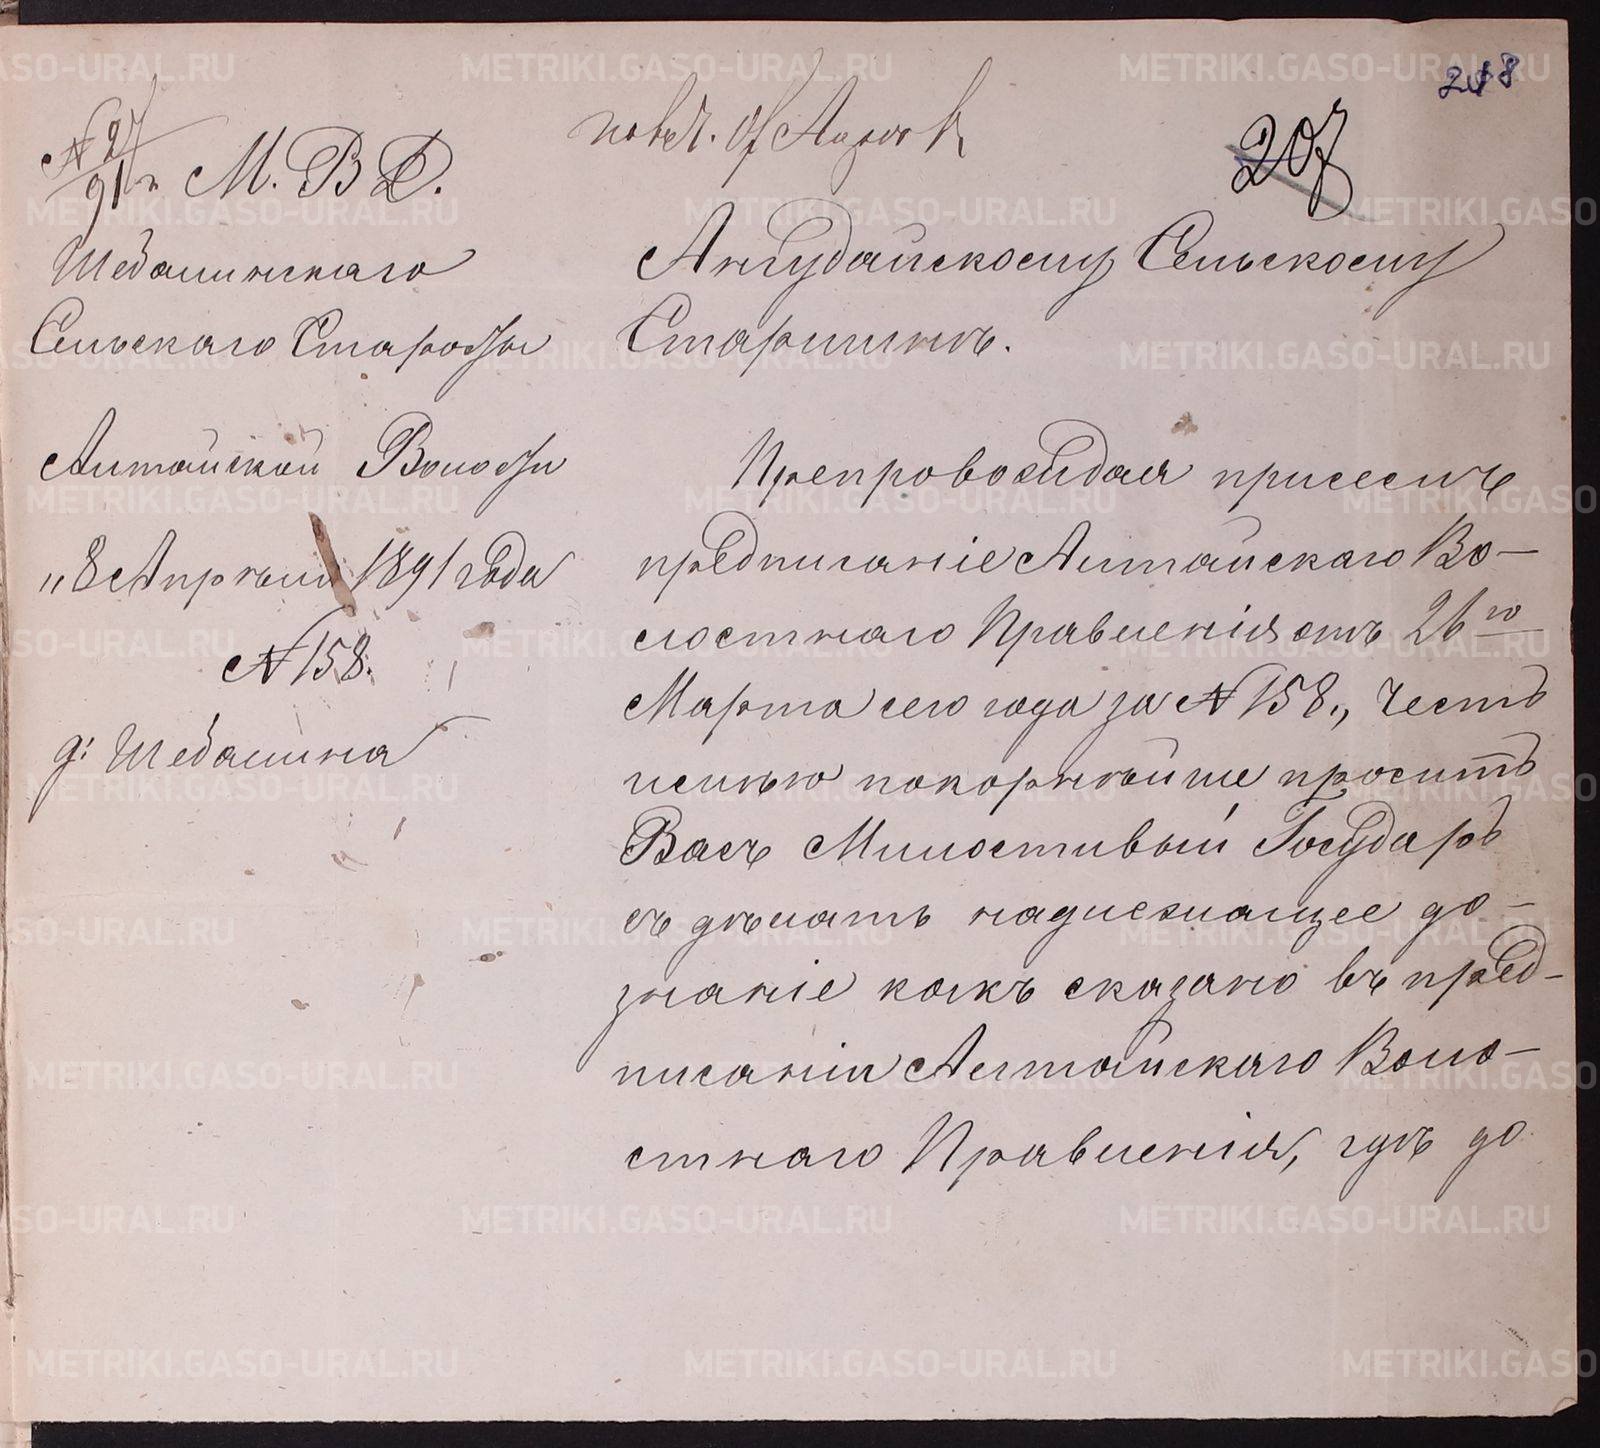 218
207
№ 27
91 г.
М. В. Д.
Шебалинскаго
Сельскаго Старосты
Алтайской Волости
„8 Апрѣля 1891 года
№ 158.
д: Шебалина
Ангудайскому Сельскому
Старшинѣ.
Препровождая присемъ
предписаніе Алтайскаго Во-
лостнаго Правленія отъ 26 го
Марта сего года за № 158., честь
имѣю покорнѣйше просить
Васъ Милостивый Государь
съ дѣлать надлежащее до-
знаніе какъ сказано въ пред-
писаніи Алтайскаго Воло-
стнаго Правленія, гдѣ до
METRIKI.GASO-URAL.RU